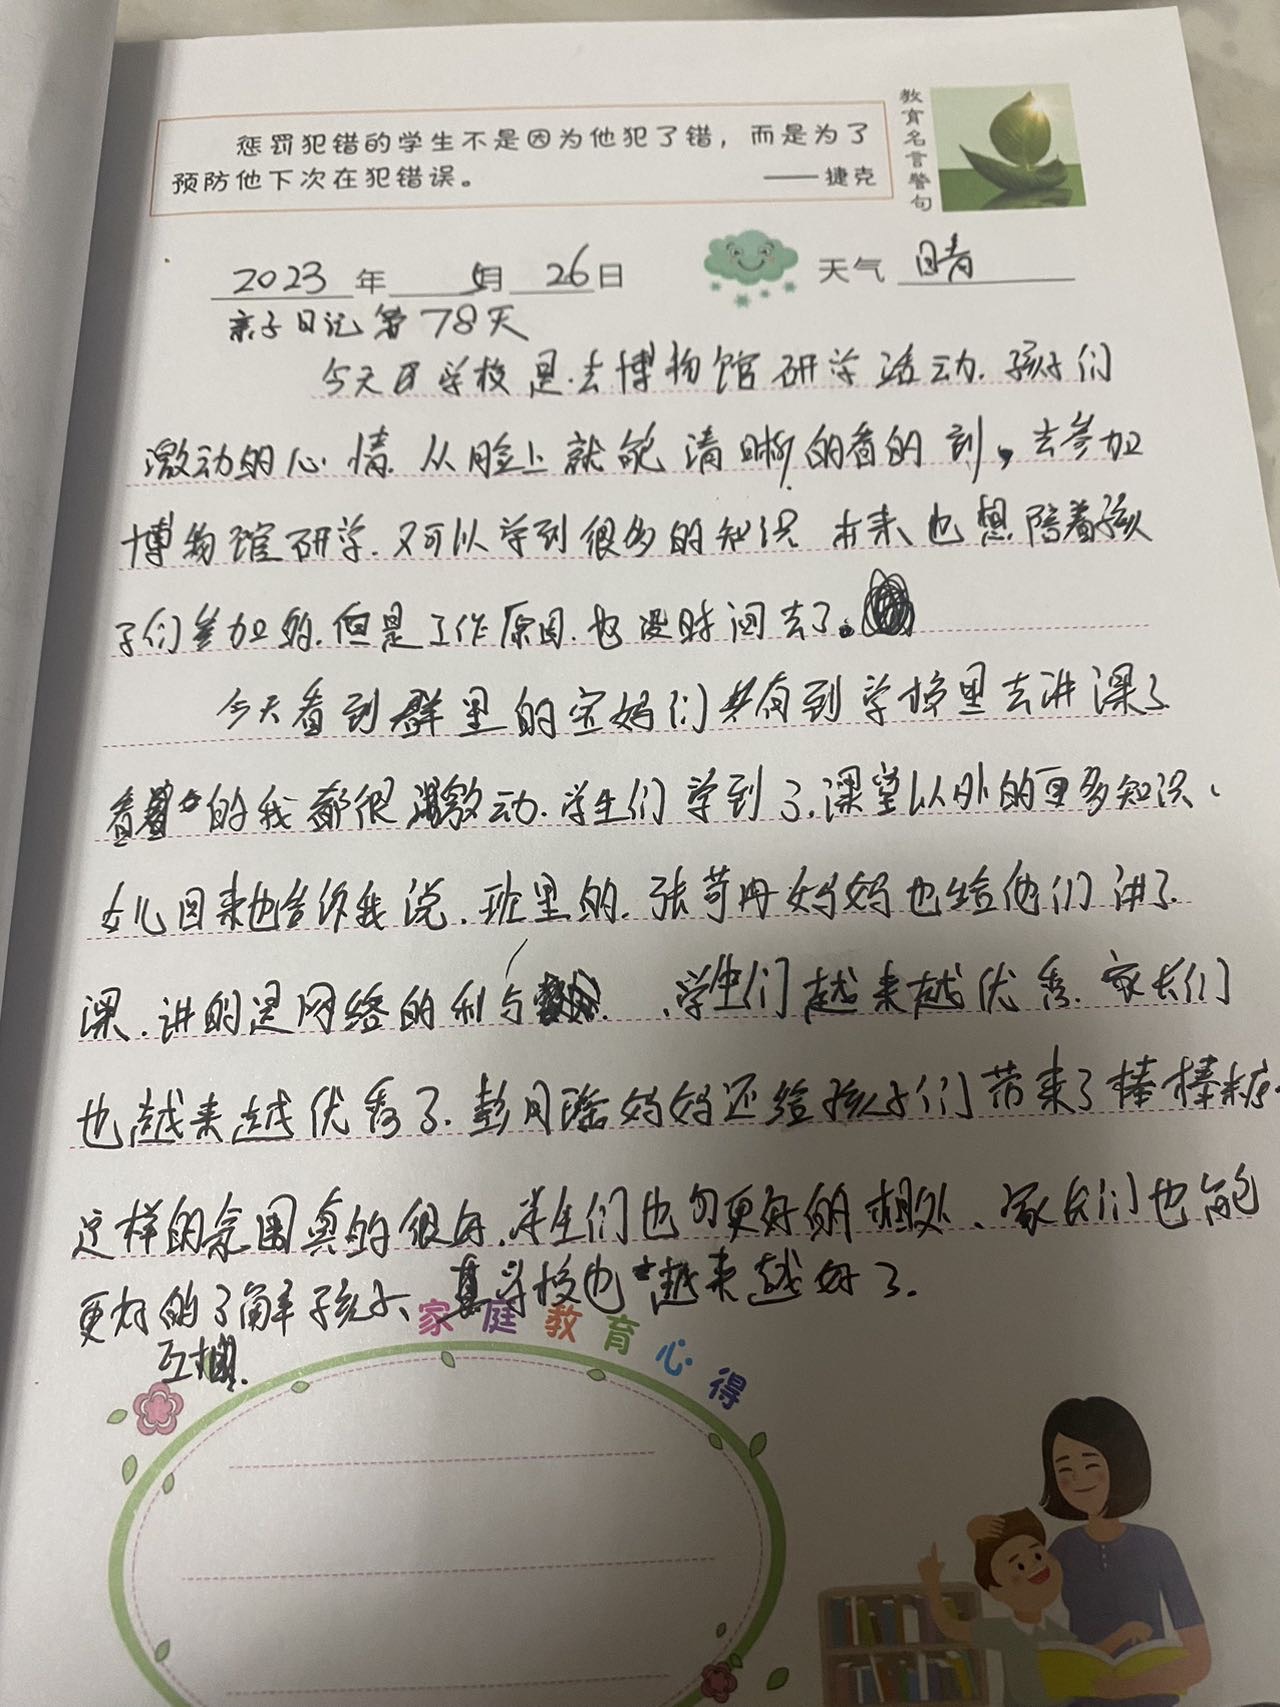 惩罚犯错的学生不是因为他犯了错，而是为了
预防他下次在犯错误。 ——捷克
教育名言警句
2023年 5月 26日 天气 晴
亲子日记第78天
今天学校是去博物馆研学活动.孩子们
激动的心情.从脸上就能清晰的看的到，去参加
博物馆研学.又可以学到很多的知识 本来也想陪着孩
子们参加的.但是工作原因.也没时间去了。
今天看到群里的宝妈们共有到学校里去讲课了
看着的我都很激动.学生们学到了.课堂以外的更多知识、
女儿回来也给我说.班里的.张苛冉妈妈也给他们讲了
课.讲的是网络的利与 、学生们越来越优秀.家长们
也越来越优秀了.彭月瑶妈妈还给孩子们带来了棒棒糖.
这样的氛围真的很好.学生们也更好的相处、家长们也能
更好的了解孩子、学校也越来越好了.
互相.
家庭教育心得